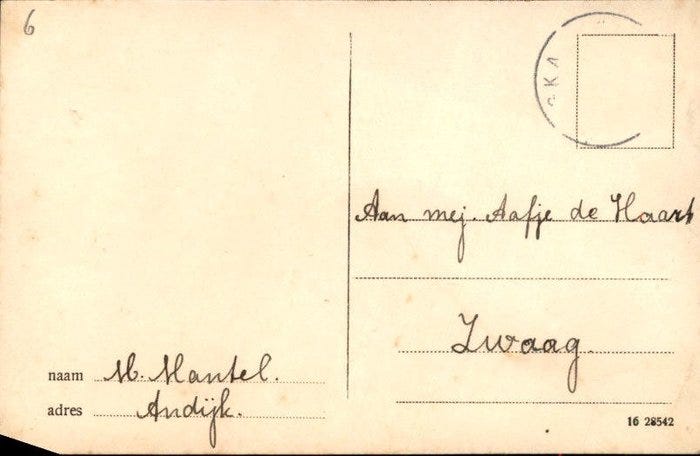 6
Aan mej. Aafje de Haart
Zwaag.
naam M. Mantel.
adres Andijk.
16 28542